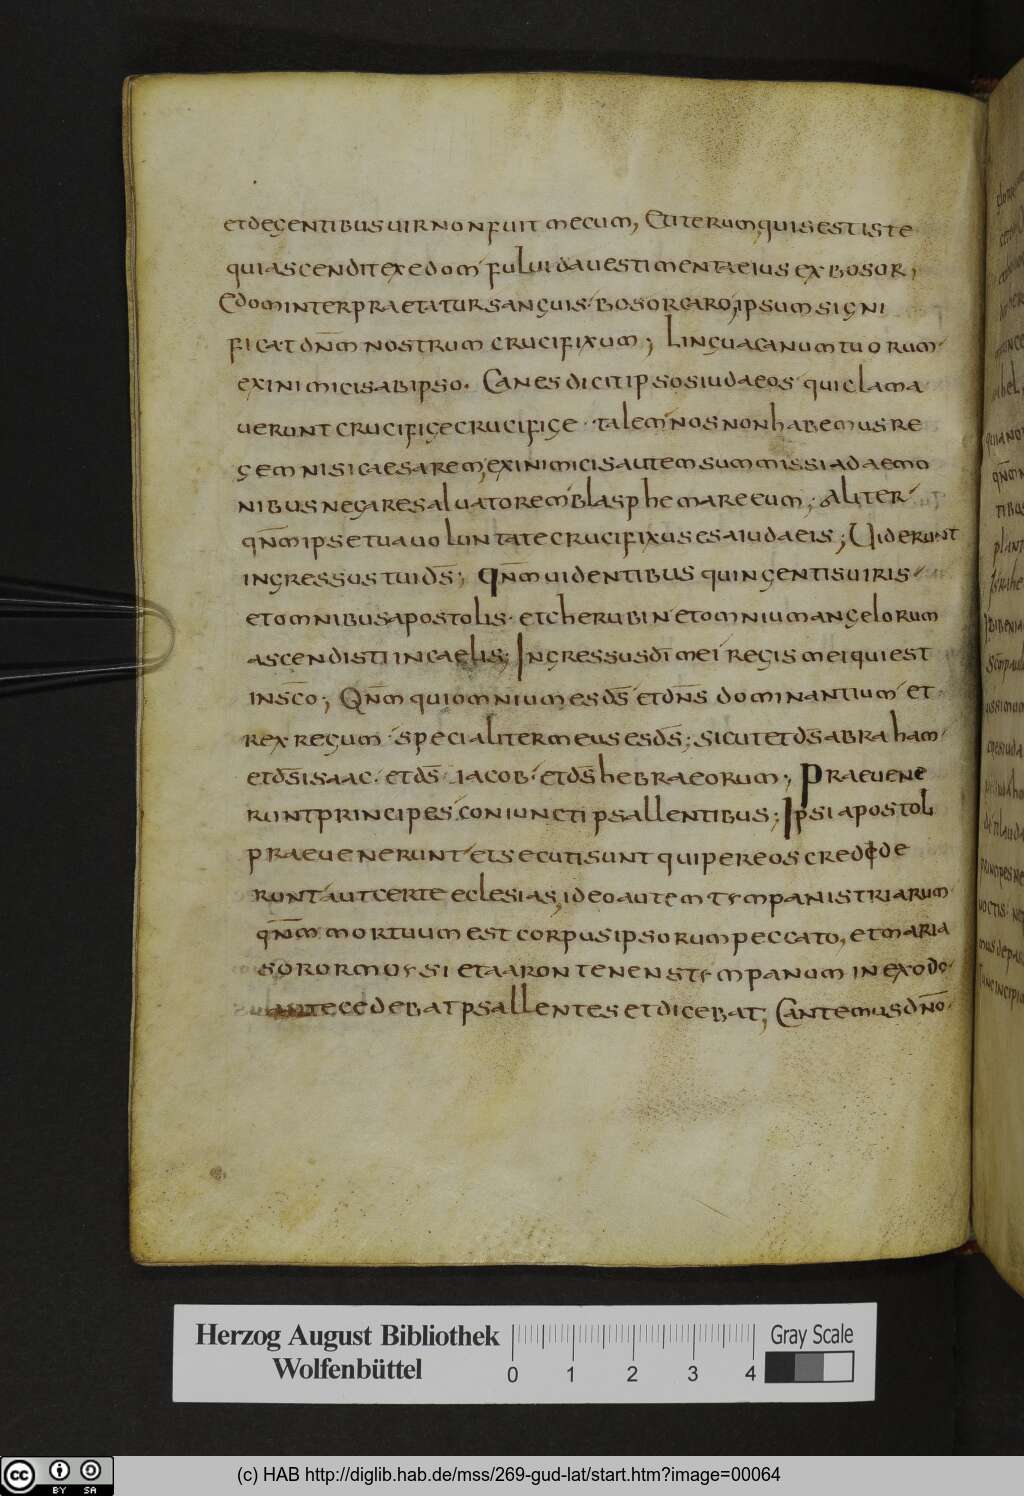 et de gentibus uir non fuit mecum, Et iterum, quis est iste
qui ascendit ex edom fuluida uestimenta eius ex bosor;
Edom interpraetatur sanguis. bosor caro, ipsum signi
ficat dn̅m nostrum crucifixum; Lingua canum tuorum
ex inimicis ab ipso. Canes dicit ipsos iudaeos qui clama
uerunt crucifige crucifige. talem nos non habemus re
gem nisi caesarem, ex inimicis autem summissi a daemo
nibus negare saluatorem blasphemare eum; Aliter
qn̅m ipse tua uoluntate crucifixus es a iudaeis; Uiderunt
ingressus tui ds̅; qn̅m uidentibus quingentis uiris
et omnibus apostolis. et cherubin et omnium angelorum
ascendisti in caelis; Ingressus di̅ mei regis mei qui est
in sc̅o; Qn̅m qui omnium es ds̅ et dn̅s dominantium et
rex regum. specialiter meus es ds̅; sicut et ds̅ abraham
et ds̅ isaac. et ds̅ iacob. et ds̅ hebraeorum; Praeuene
runt principes coniuncti psallentibus; Ipsi apostoli
praeuenerunt et secuti sunt qui per eos credide
runt aut certe eclesias, ideo autem tympanistriarum
qn̅m mortuum est corpus ipsorum peccato, et maria
soror moysi et aaron tenens tympanum in exodo
antecedebat psallentes et dicebat; Cantemus dn̅o
Herzog August Bibliothek
Wolfenbüttel
0 1 2 3 4
Gray Scale
cc BY SA
(c) HAB http://diglib.hab.de/mss/269-gud-lat/start.htm?image=00064